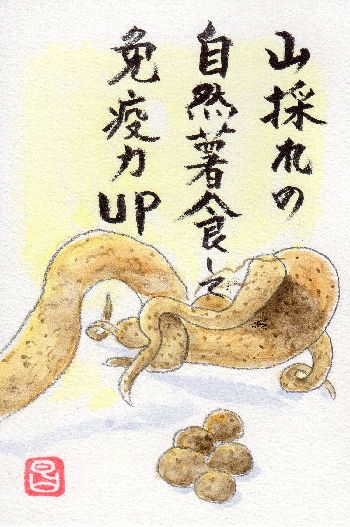 山採れの
自然薯食して
免疫力
UP